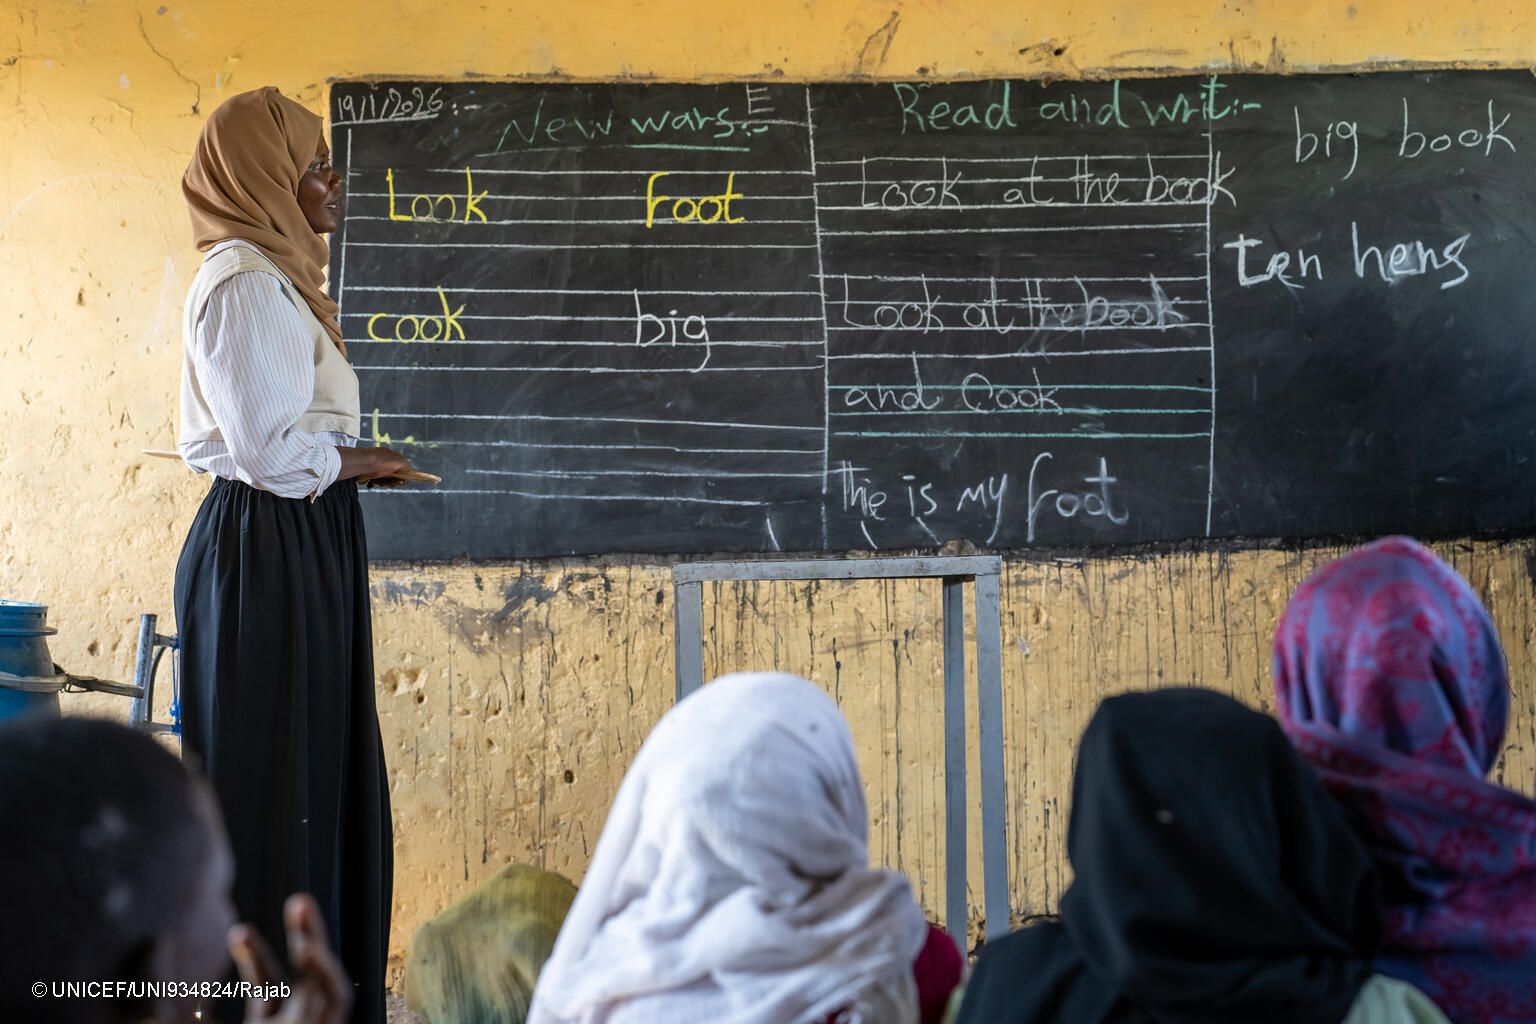 19/1/2026:-
E
New wars:-
Look
foot
cook
big
h
Read and writ:-
Look at the book
Look at the book
and Cook
thie is my foot
big book
ten hens
© UNICEF/UNI934824/Rajab